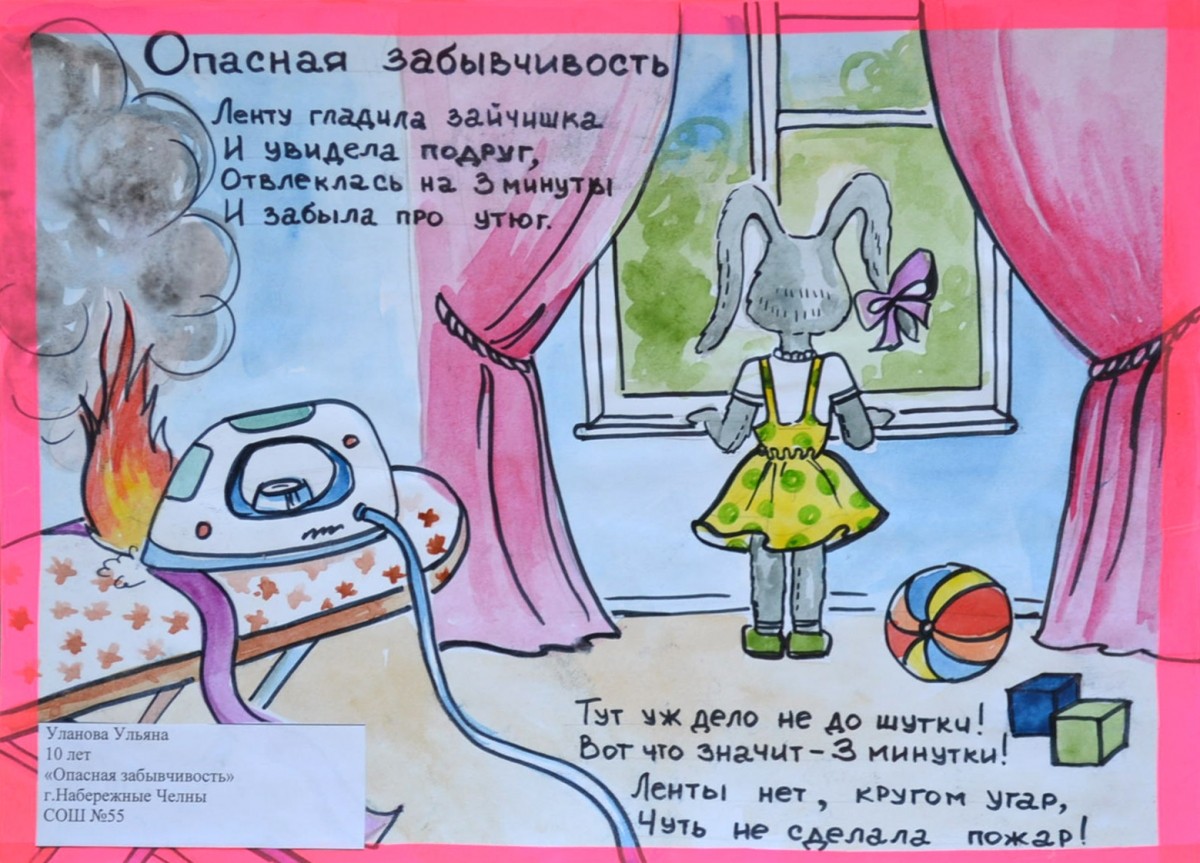 Опасная забывчивость
Ленту гладила зайчишка
И увидела подруг,
Отвлеклась на 3 минуты
И забыла про утюг.
Тут уж дело не до шутки!
Вот что значит – 3 минутки!
Ленты нет, кругом угар,
Чуть не сделала пожар!
Уланова Ульяна
10 лет
«Опасная забывчивость»
г.Набережные Челны
СОШ №55